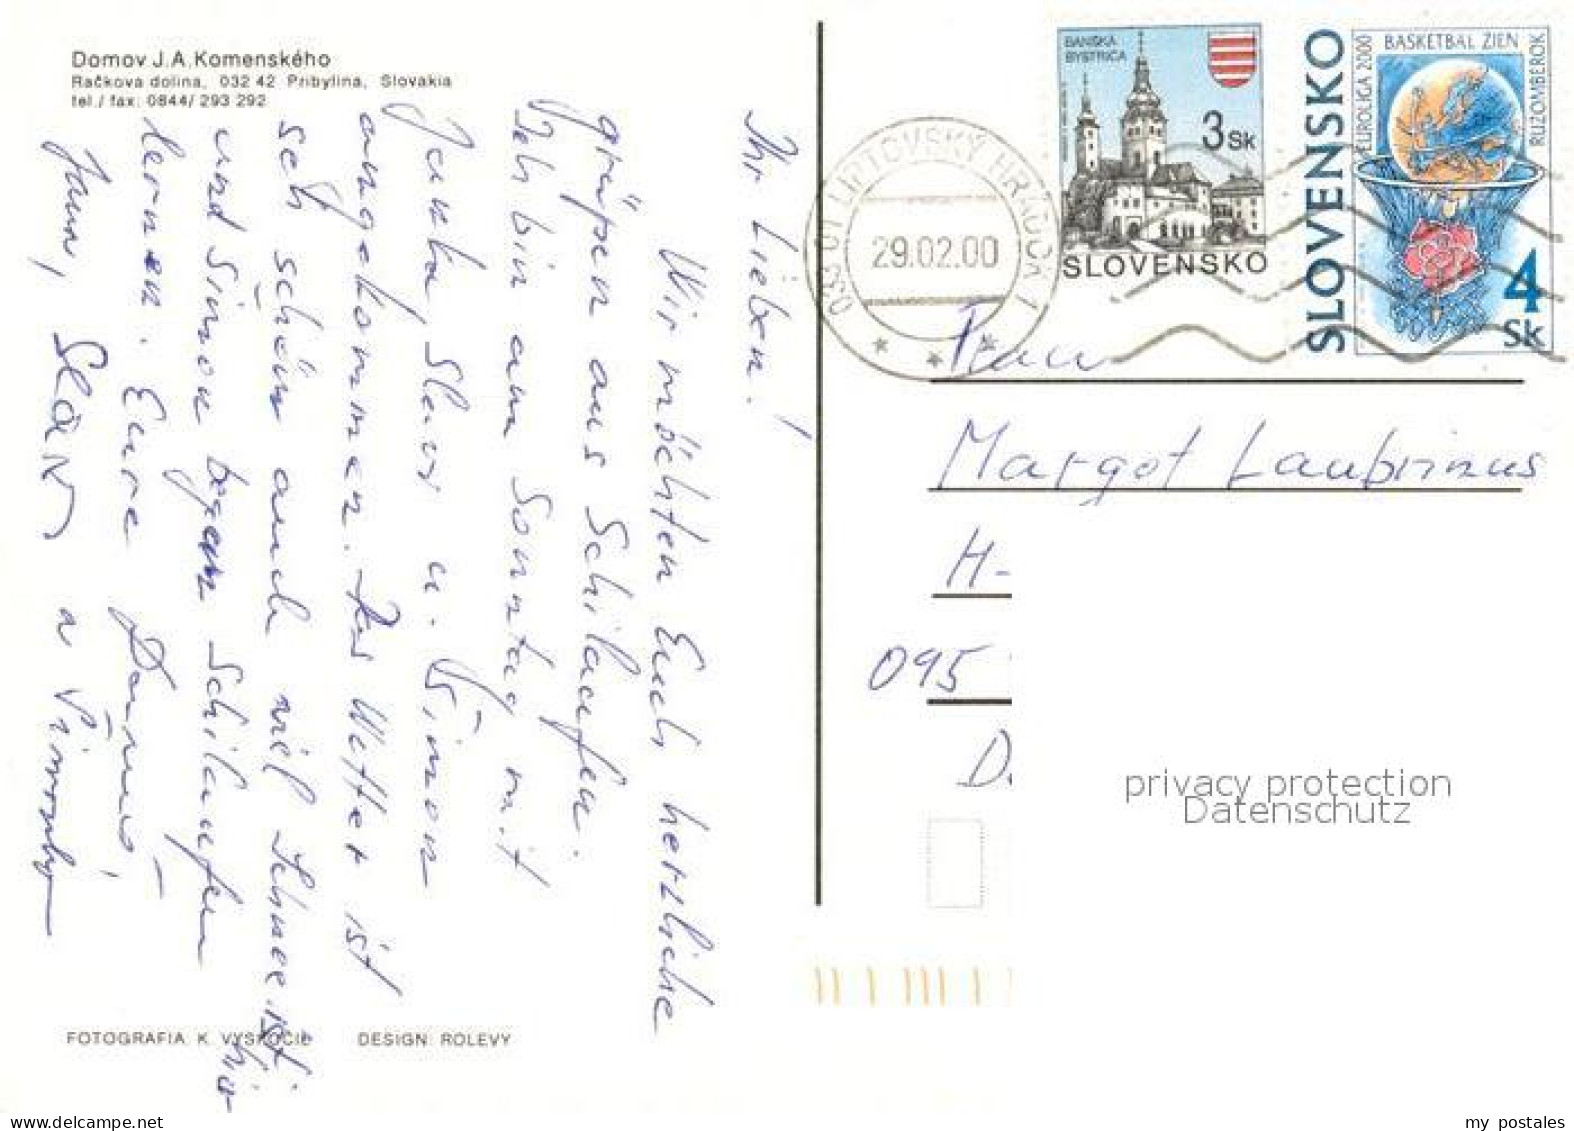 Domov J.A.Komenského
Račkova dolina, 032 42 Pribylina, Slovakia
tel./ fax: 0844/ 293 292
Ihr Lieben!
Wir möchten Euch herzliche
grüßen aus Schilaufen.
Ich bin am Sonntag mit
Janka, Slavi u. Simon
angekommen. Das Wetter ist
seh schön auch viel Schnee ist hier
und Simon Schilaufen
lernen. Eure
a Simonko
FOTOGRAFIA K. VYSKOČIL DESIGN: ROLEVY
BANSKÁ
BYSTRICA
3 Sk
SLOVENSKO
SLOVENSKO
EUROLIGA 2000
BASKETBAL ŽIEN
RUŽOMBEROK
4
Sk
033 01 LIPTOVSKÝ HRÁDOK 1
29.02.00
Frau
Margot Laubrinus
H-
095
D.
privacy protection
Datenschutz
my postales